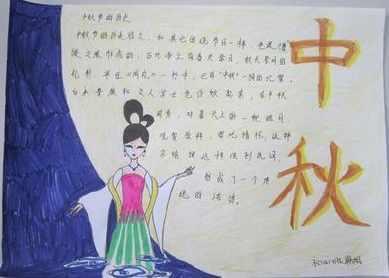 中秋节的由来
中秋节的历史悠久,和其他传统节日一样,也是慢
慢发展形成的,古代帝王有春天祭日,秋天祭月的
礼制,早在《周礼》一书中,已有“中秋”一词的记载。
后来贵族和文人学士也仿效起来,在中秋
时节,对着天上
观赏祭拜,寄托情怀,这种
习俗就这样传到民间,
形成了一个传
统的活动。
中
秋